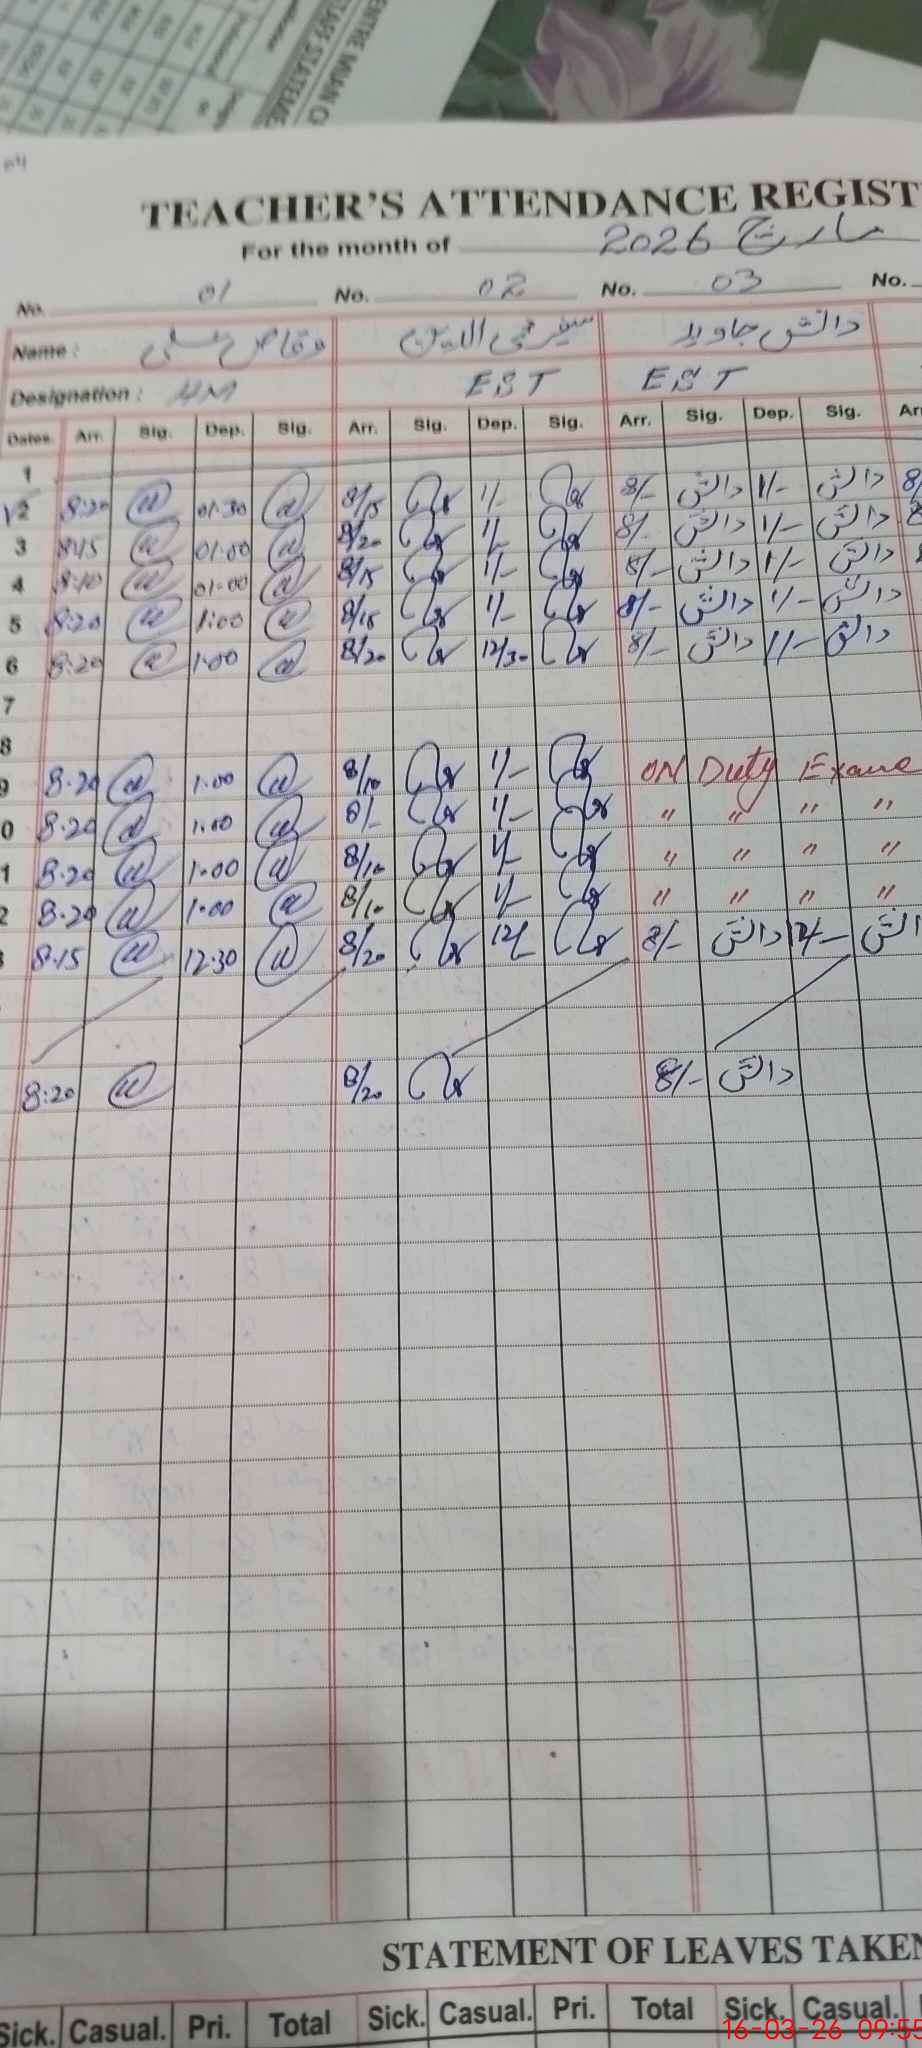 TEACHER'S ATTENDANCE REGIST
For the month of مارچ 2026
No. 01 No. 02 No. 03 No.
Name : وقاص علی دانش جاوید
Designation : HM EST EST
Dates. Arr. Sig. Dep. Sig. Arr. Sig. Dep. Sig. Arr. Sig. Dep. Sig. Arr
1
2 8:20 01:30 8/15 1/- 8/- دانش 1/- دانش 8/
3 8:15 01:00 8/20 1/- 8/- دانش 1/- دانش 8
4 8:10 01:00 8/15 1/- 8/- دانش 1/- دانش
5 8:20 1:00 8/15 1/- 8/- دانش 1/- دانش
6 8:20 1:00 8/20 12/30 8/- دانش 1/- دانش
7
8
9 8:20 1:00 8/10 1/- ON Duty
0 8:20 1:00 8/- 1/- " " " "
1 8:20 1:00 8/10 1/- " " " "
2 8:20 1:00 8/10 1/- " " " "
8:15 12:30 8/20 12/- 8/- دانش 12/- دانش
8:20 8/20 8/- دانش
STATEMENT OF LEAVES TAKEN
Sick. Casual. Pri. Total Sick. Casual. Pri. Total Sick. Casual.
16-03-26 09:55